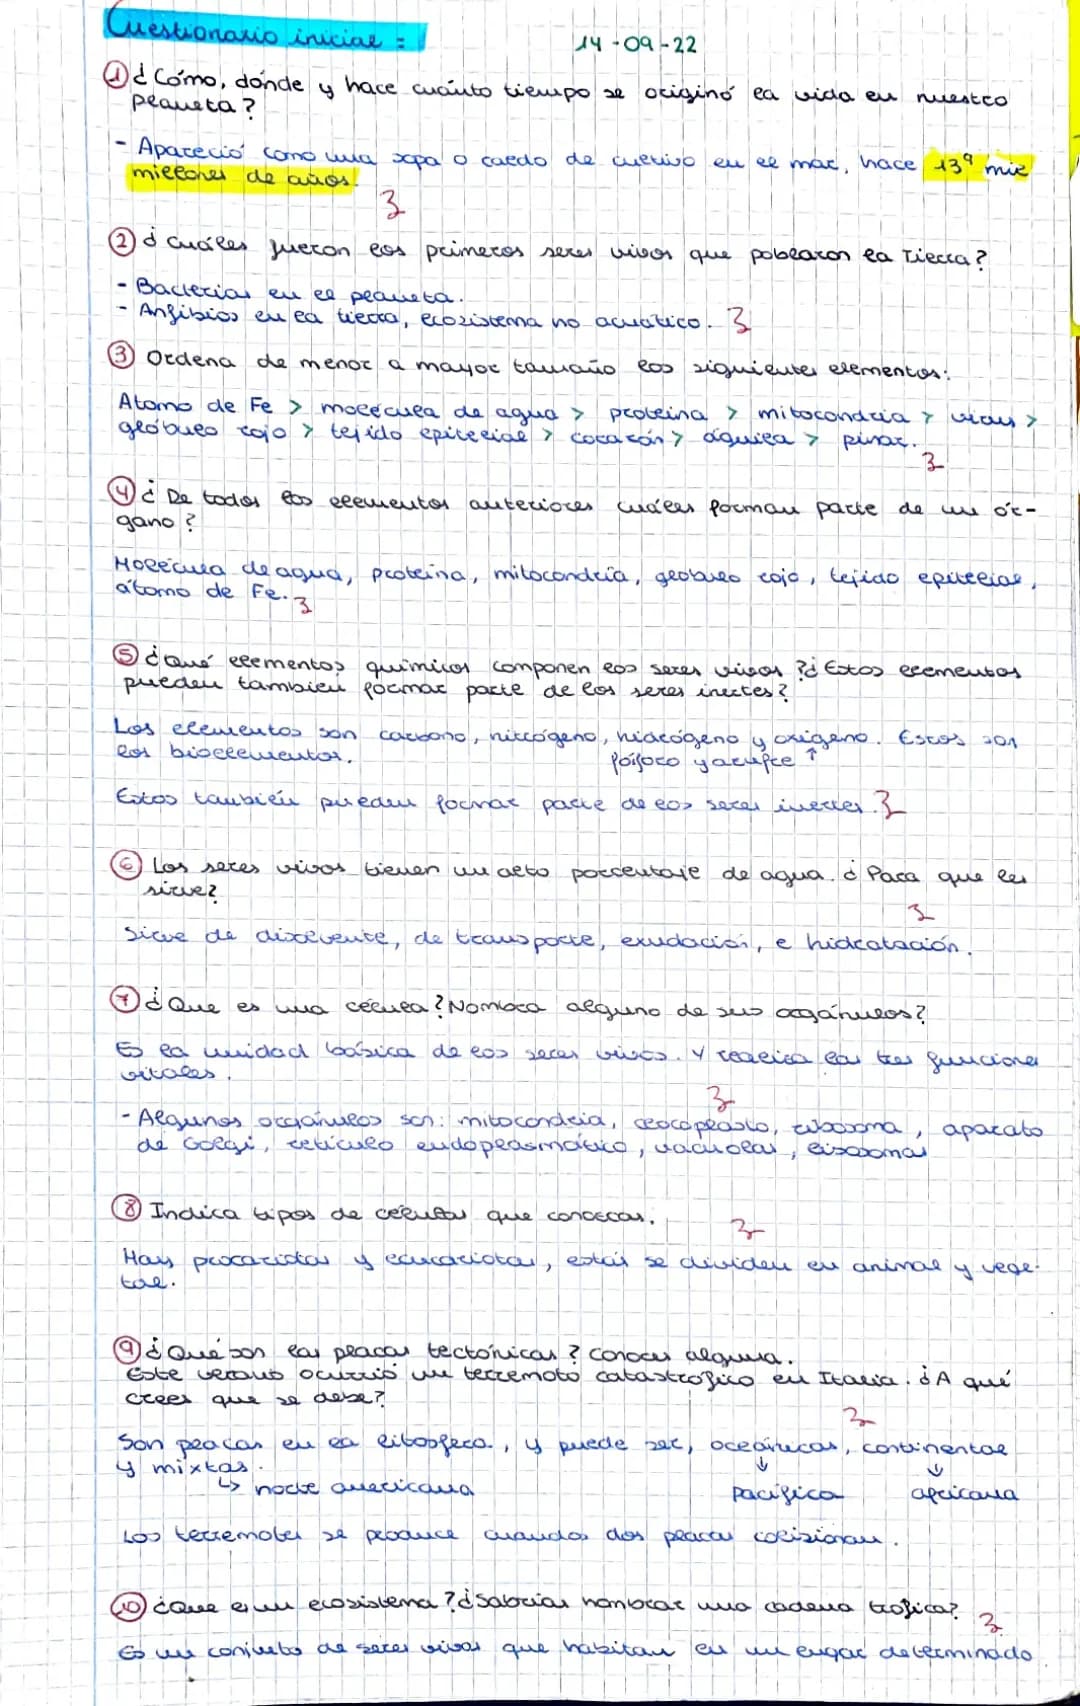 Cuestionario inicial :
14-09-22
① ¿Cómo, dónde y hace cuánto tiempo se originó la vida en nuestro
planeta?
- Apareció como una sopa o caldo de cultivo en el mar, hace 13ª mil
millones de años.
② ¿Cuáles fueron los primeros seres vivos que poblaron la Tierra?
- Bacterias en el planeta.
- Anfibios en la tierra, ecosistema no acuático.
③ Ordena de menor a mayor tamaño los siguientes elementos:
Atomo de Fe > molécula de agua > proteina > mitocondria > virus >
glóbulo rojo > tejido epitelial > corazón > águila > pinar.
④ ¿De todos los elementos anteriores cuáles forman parte de un ór-
gano?
Molécula de agua, proteína, mitocondria, glóbulo rojo, tejido epitelial,
átomo de Fe.
⑤ ¿Qué elementos químicos componen los seres vivos? ¿Estos elementos
pueden tambien formar parte de los seres inertes?
Los elementos son carbono, nitrógeno, hidrógeno y oxigeno. Estos son
los bioelementos. fósforo y azufre ↑
Estos también pueden formar parte de los seres inertes.
⑥ Los seres vivos tienen un alto porcentaje de agua. ¿Para que les
sirve?
Sirve de disolvente, de transporte, exudación, e hidratación.
⑦ ¿Que es una célula? Nombra alguno de sus orgánulos?
Es la unidad básica de los seres vivos. Y realiza las tres funciones
vitales.
- Algunos orgánulos son: mitocondria, cloroplasto, ribosoma, aparato
de Golgi, retículo endoplasmático, vacuolas, lisosomas
⑧ Indica tipos de células que conozcas.
Hay procariotas y eucariotas, estás se dividen en animal y vege-
tal.
⑨ ¿Qué son las placas tectónicas? Conoces alguna.
Este verano ocurrió un terremoto catastrófico en Italia. ¿A qué
crees que se debe?
Son placas en la litosfera, y puede ser, oceánicas, continental
y mixtas. ↓ ↓
↳ norte americana pacifica africana
Los terremotos se produce cuandos dos placas colisionan.
⑩ ¿Que es un ecosistema? ¿Sabrias nombrar una cadena trofica?
Es un conjunto de seres vivos que habitan en un lugar determinado.